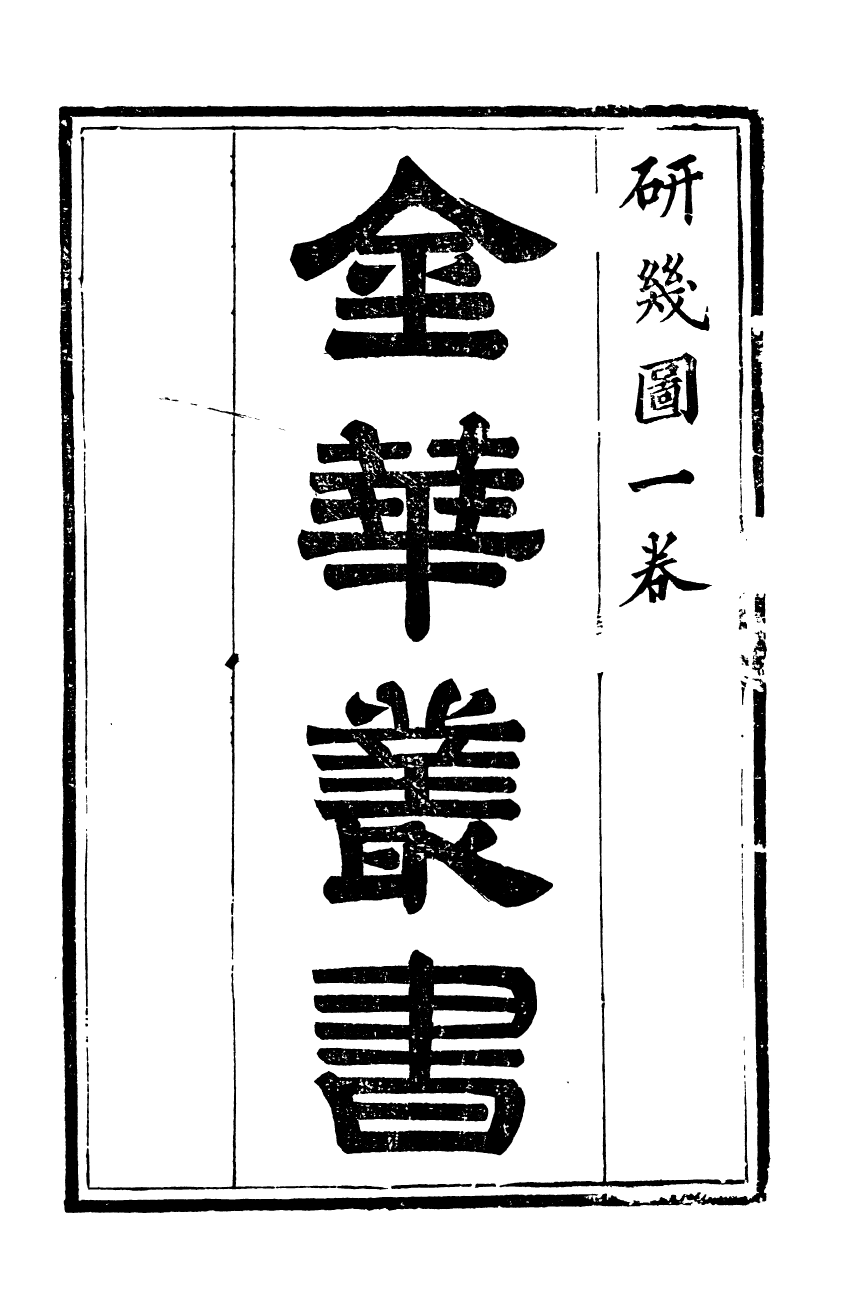 研幾圖一卷
金華叢書